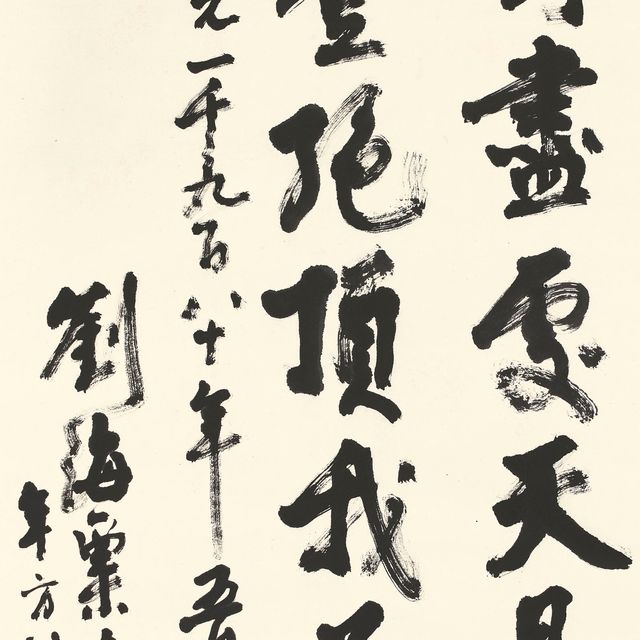 盡處天
登絕頂我
元一千九百八十年吾
劉海粟
年方